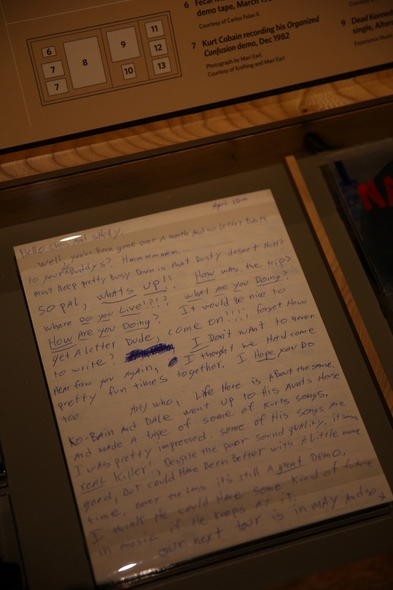 6 Fecal
demo tape, March
Courtesy of
7 Kurt Cobain recording his Organized
Confusion demo, Dec 1982
Photograph by Mari Earl
Courtesy of and Mari Earl
9 Dead Kenned
single,
11
6 9 12
7 8
7 10 13
NA
April
Well, you've Been gone over a month and no letters
to your Buddys? Hmmmmmm
must keep pretty Busy Down in that Dusty desert Huh?
so pal, what's up!! How was the trip?
where Do you Live!?!? what are you Doing?
How Are you Doing? It would Be nice to
get A letter Dude, come on!!!! forget How
to write? I Don't want to never
Hear from you Again, I thought we Had some
pretty fun times together. I Hope you Do
too.
Any who, Life Here is About the same.
Ko-Bain And Dale went up to His Aunts House
And made A tape of some of Kurts songs,
I was pretty impressed. some of His songs Are
real Killer! Despite the poor sound quality, it's
good, But could Have Been Better with A Little more
time, never the less its still A great Demo,
I think He could Have some Kind of future
in music if He Keeps At it.
our next tour is in MAY And